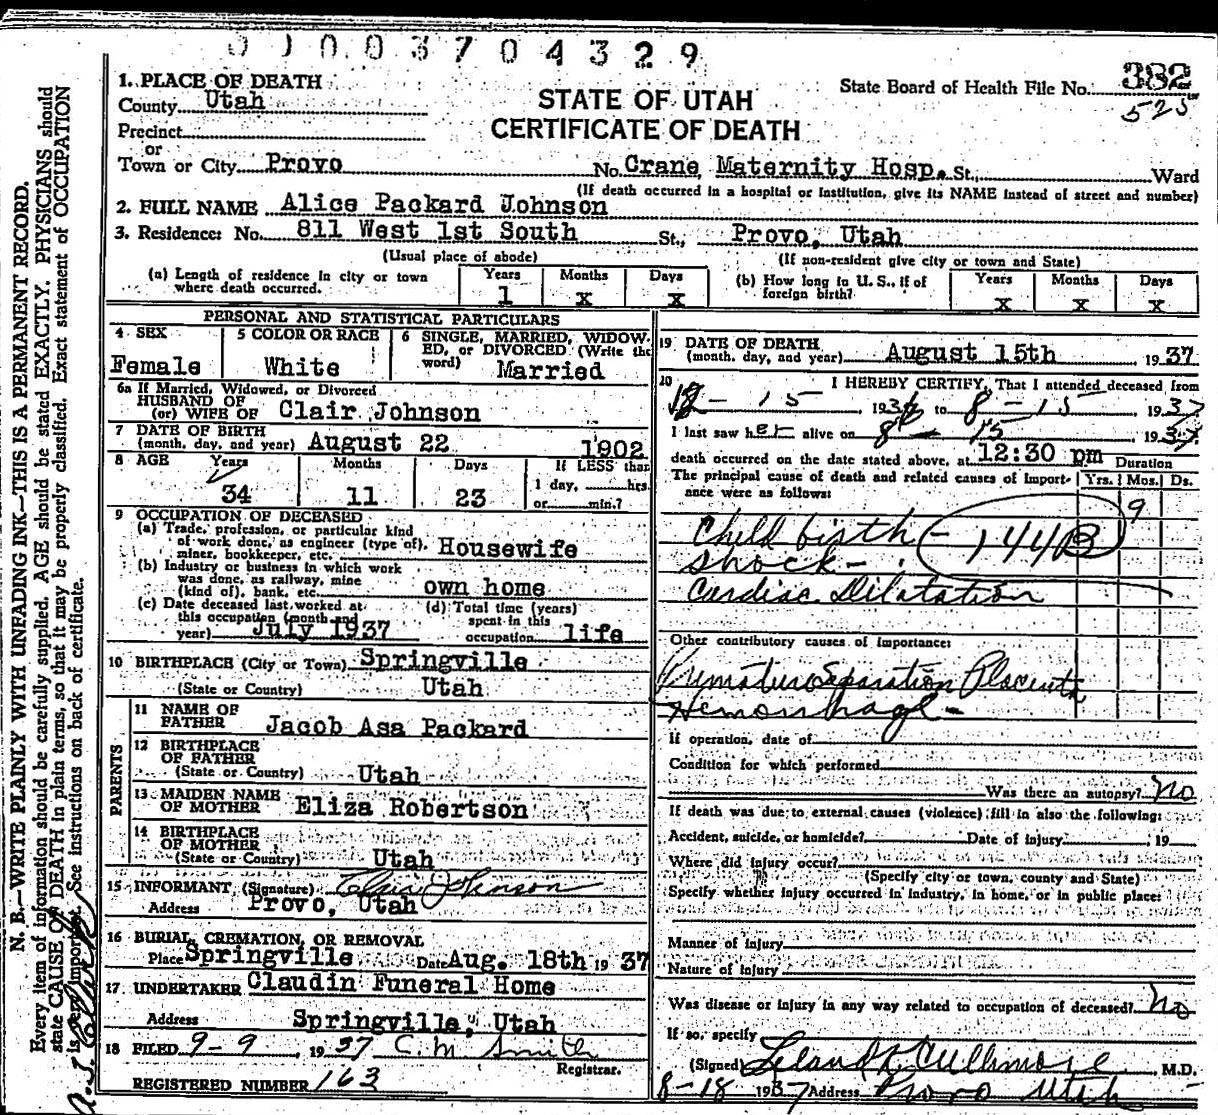 0 0 0 3 7 0 4 3 2 9
1. PLACE OF DEATH
County Utah
STATE OF UTAH
State Board of Health File No. 382
525
Precinct
CERTIFICATE OF DEATH
or
Town or City Provo No. Crane Maternity Hosp. St., Ward
(If death occurred in a hospital or institution, give its NAME instead of street and number)
2. FULL NAME Alice Packard Johnson
3. Residence: No. 811 West 1st South St., Provo, Utah
(Usual place of abode) (If non-resident give city or town and State)
(a) Length of residence in city or town where death occurred. Years 1 Months x Days x
(b) How long in U. S., if of foreign birth? Years x Months x Days x
PERSONAL AND STATISTICAL PARTICULARS
4 SEX Female
5 COLOR OR RACE White
6 SINGLE, MARRIED, WIDOWED, or DIVORCED (Write the word) Married
6a If Married, Widowed, or Divorced
HUSBAND OF
(or) WIFE OF Clair Johnson
7 DATE OF BIRTH
(month, day, and year) August 22 1902
8 AGE Years 34 Months 11 Days 23
If LESS than
1 day, hrs.
or min.?
9 OCCUPATION OF DECEASED
(a) Trade, profession, or particular kind
of work done, as engineer (type of),
miner, bookkeeper, etc. Housewife
(b) Industry or business in which work
was done, as railway, mine
(kind of), bank, etc. own home
(c) Date deceased last worked at
this occupation (month and
year) July 1937
(d) Total time (years)
spent in this
occupation life
10 BIRTHPLACE (City or Town) Springville
(State or Country) Utah
PARENTS
11 NAME OF
FATHER Jacob Asa Packard
12 BIRTHPLACE
OF FATHER
(State or Country) Utah
13 MAIDEN NAME
OF MOTHER Eliza Robertson
14 BIRTHPLACE
OF MOTHER
(State or Country) Utah
15 INFORMANT (Signature) Clair Johnson
Address Provo, Utah
16 BURIAL, CREMATION, OR REMOVAL
Place Springville Date Aug. 18th 1937
17 UNDERTAKER Claudin Funeral Home
Address Springville, Utah
18 FILED 9-9, 1937 C. M. Smith
Registrar.
REGISTERED NUMBER 163
19 DATE OF DEATH
(month, day, and year) August 15th 1937
I HEREBY CERTIFY, That I attended deceased from
- 15 193 to 8-15, 1937
I last saw her alive on 8-15, 1937
death occurred on the date stated above, at 12:30 pm Duration
The principal cause of death and related causes of importance were as follows: Yrs. Mos. Ds.
9
Child birth - 144B
Shock -
Cardiac Dilatation
Other contributory causes of importance:
Premature Separation Placenta
Hemorrhage -
If operation, date of
Condition for which performed
Was there an autopsy? No
If death was due to external causes (violence) fill in also the following:
Accident, suicide, or homicide? Date of injury 19
Where did injury occur?
(Specify city or town, county and State)
Specify whether injury occurred in industry, in home, or in public place:
Manner of injury
Nature of injury
Was disease or injury in any way related to occupation of deceased? No
If so, specify
(Signed) Leland K Cullimore, M.D.
8-18 1937 Address Provo Utah
N. B.—WRITE PLAINLY WITH UNFADING INK—THIS IS A PERMANENT RECORD.
Every item of information should be carefully supplied. AGE should be stated EXACTLY. PHYSICIANS should
state CAUSE OF DEATH in plain terms, so that it may be properly classified. Exact statement of OCCUPATION
is very important. See instructions on back of certificate.